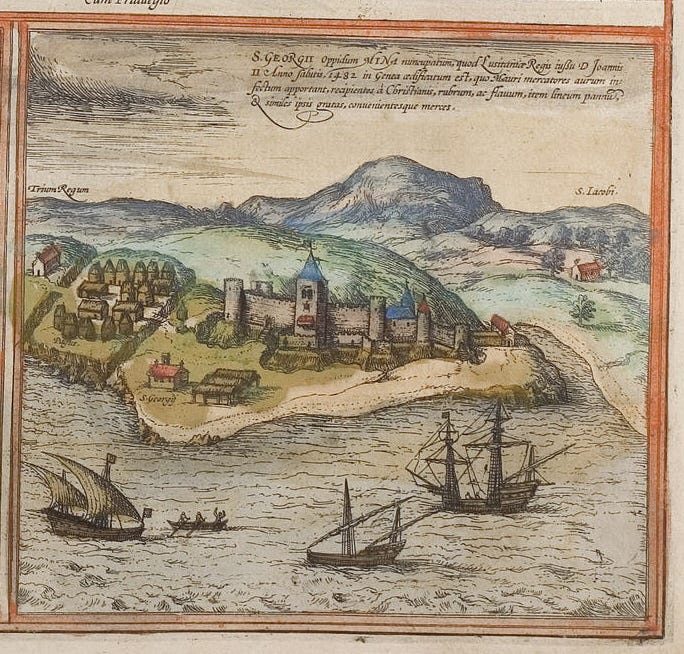 Cum Priuilegio
S. GEORGII oppidum MINA nuncupatum, quod Lusitaniæ Regis iussu D Joannis
II Anno salutis. 1482 in Genea ædificatum est, quo Mauri mercatores aurum in-
fectum apportant, recipientes à Christianis, rubrum, ac flauum, item lineum pannū,
& similes ipsis gratas, conuenientesque merces.
Trium Regum
S. Iacobi.
S. Georgij